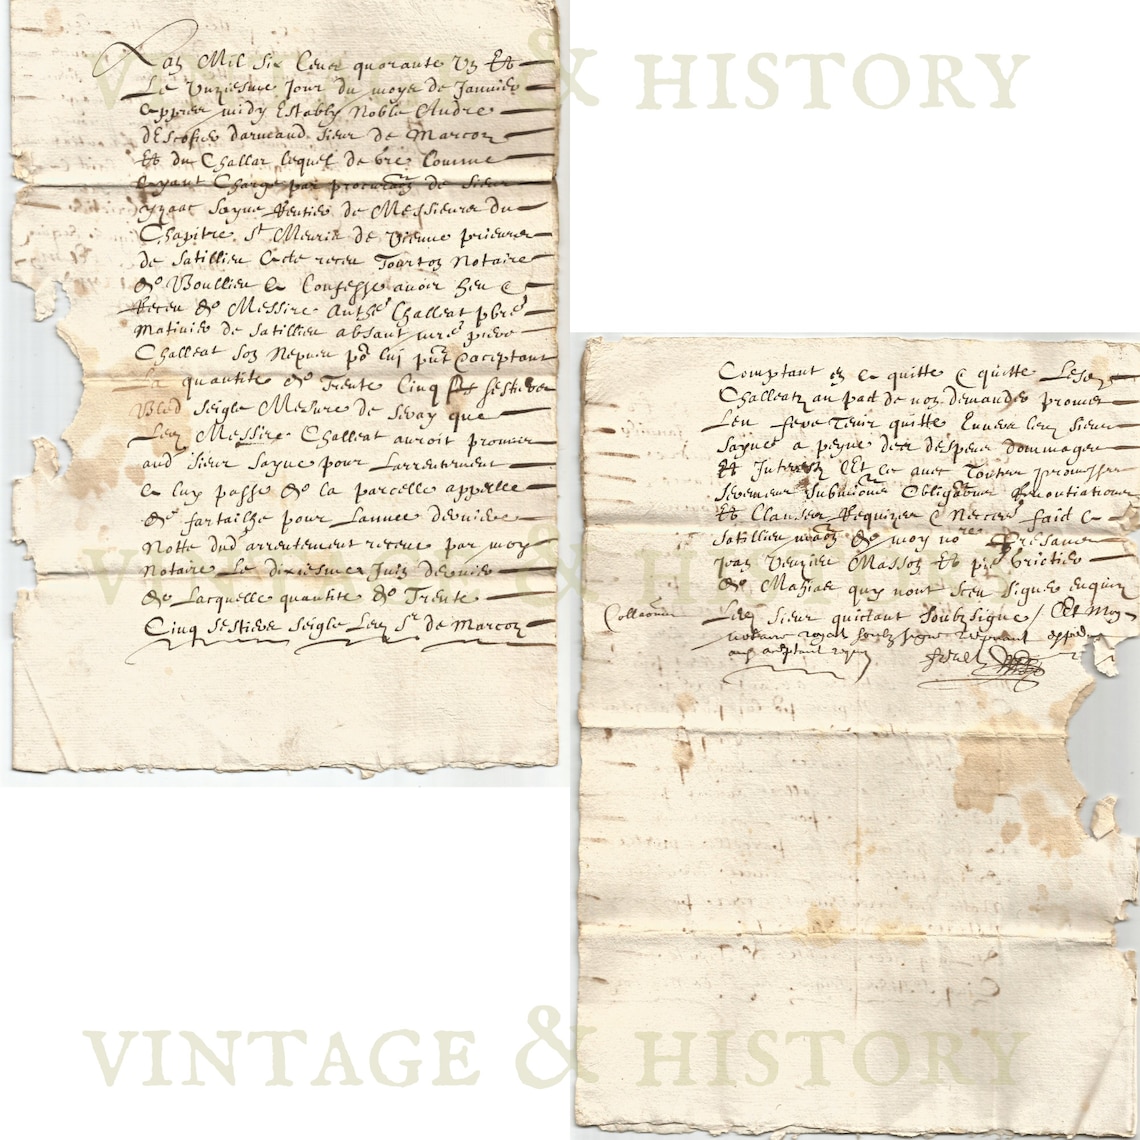 VINTAGE & HISTORY
Lan Mil Six Cens quarante Un Et
Le Unziesme Jour du moys de Janvier
appres midy Estably Noble Andre
dEscofier darneaud Sieur de Marcon
Et du Challar lequel de gre Comme
ayant Charge par procuraon de Sieur
yzaac Sayne Rentier de Messieurs du
Chapitre St Meuris de Vienne prieures
de Satillieu acte receu Tourton Notaire
de Boullieu a Confesse avoir heu &
Receu de Messire Anthe Challeat pbre
Matinier de Satillieu absant mre piere
Challeat Son Nepveu po luy pnt & aceptant
La quantite de Trente Cinq Sestiers
Bled Seigle Mesure de Seray que
Led Messire Challeat auroit promis
aud Sieur Sayne pour Larrentement
a luy passe de la parcelle appelle
de fartailhe pour Lannee derniere
Notte dud arrentement receue par moy
Notaire Le dixiesme Juin dernier
de Lacquelle quantite de Trente
Cinq Sestiers Seigle Led Sr de Marcon
Comptant en a quitte & quitte Lesd
Challeatz au pad de non demander promis
Leu feve Tenir quitte Envers led Sieur
Sayne a peyne de despens dommages
Et Interestz Et ce avec Toutes promesses
Serement Submions Obligaons Renontiations
Et Clauses Requizes & Necceres faid a
Satillieu maon de moy nore Presans
Jean Verzier Masson Et pre Brictier
de Mahiac quy nont Sceu Signer enquis
Collaonne Led Sieur quictant Soubsigne / Et Moy
notaire royal soubz signe
VINTAGE & HISTORY
VINTAGE & HISTORY